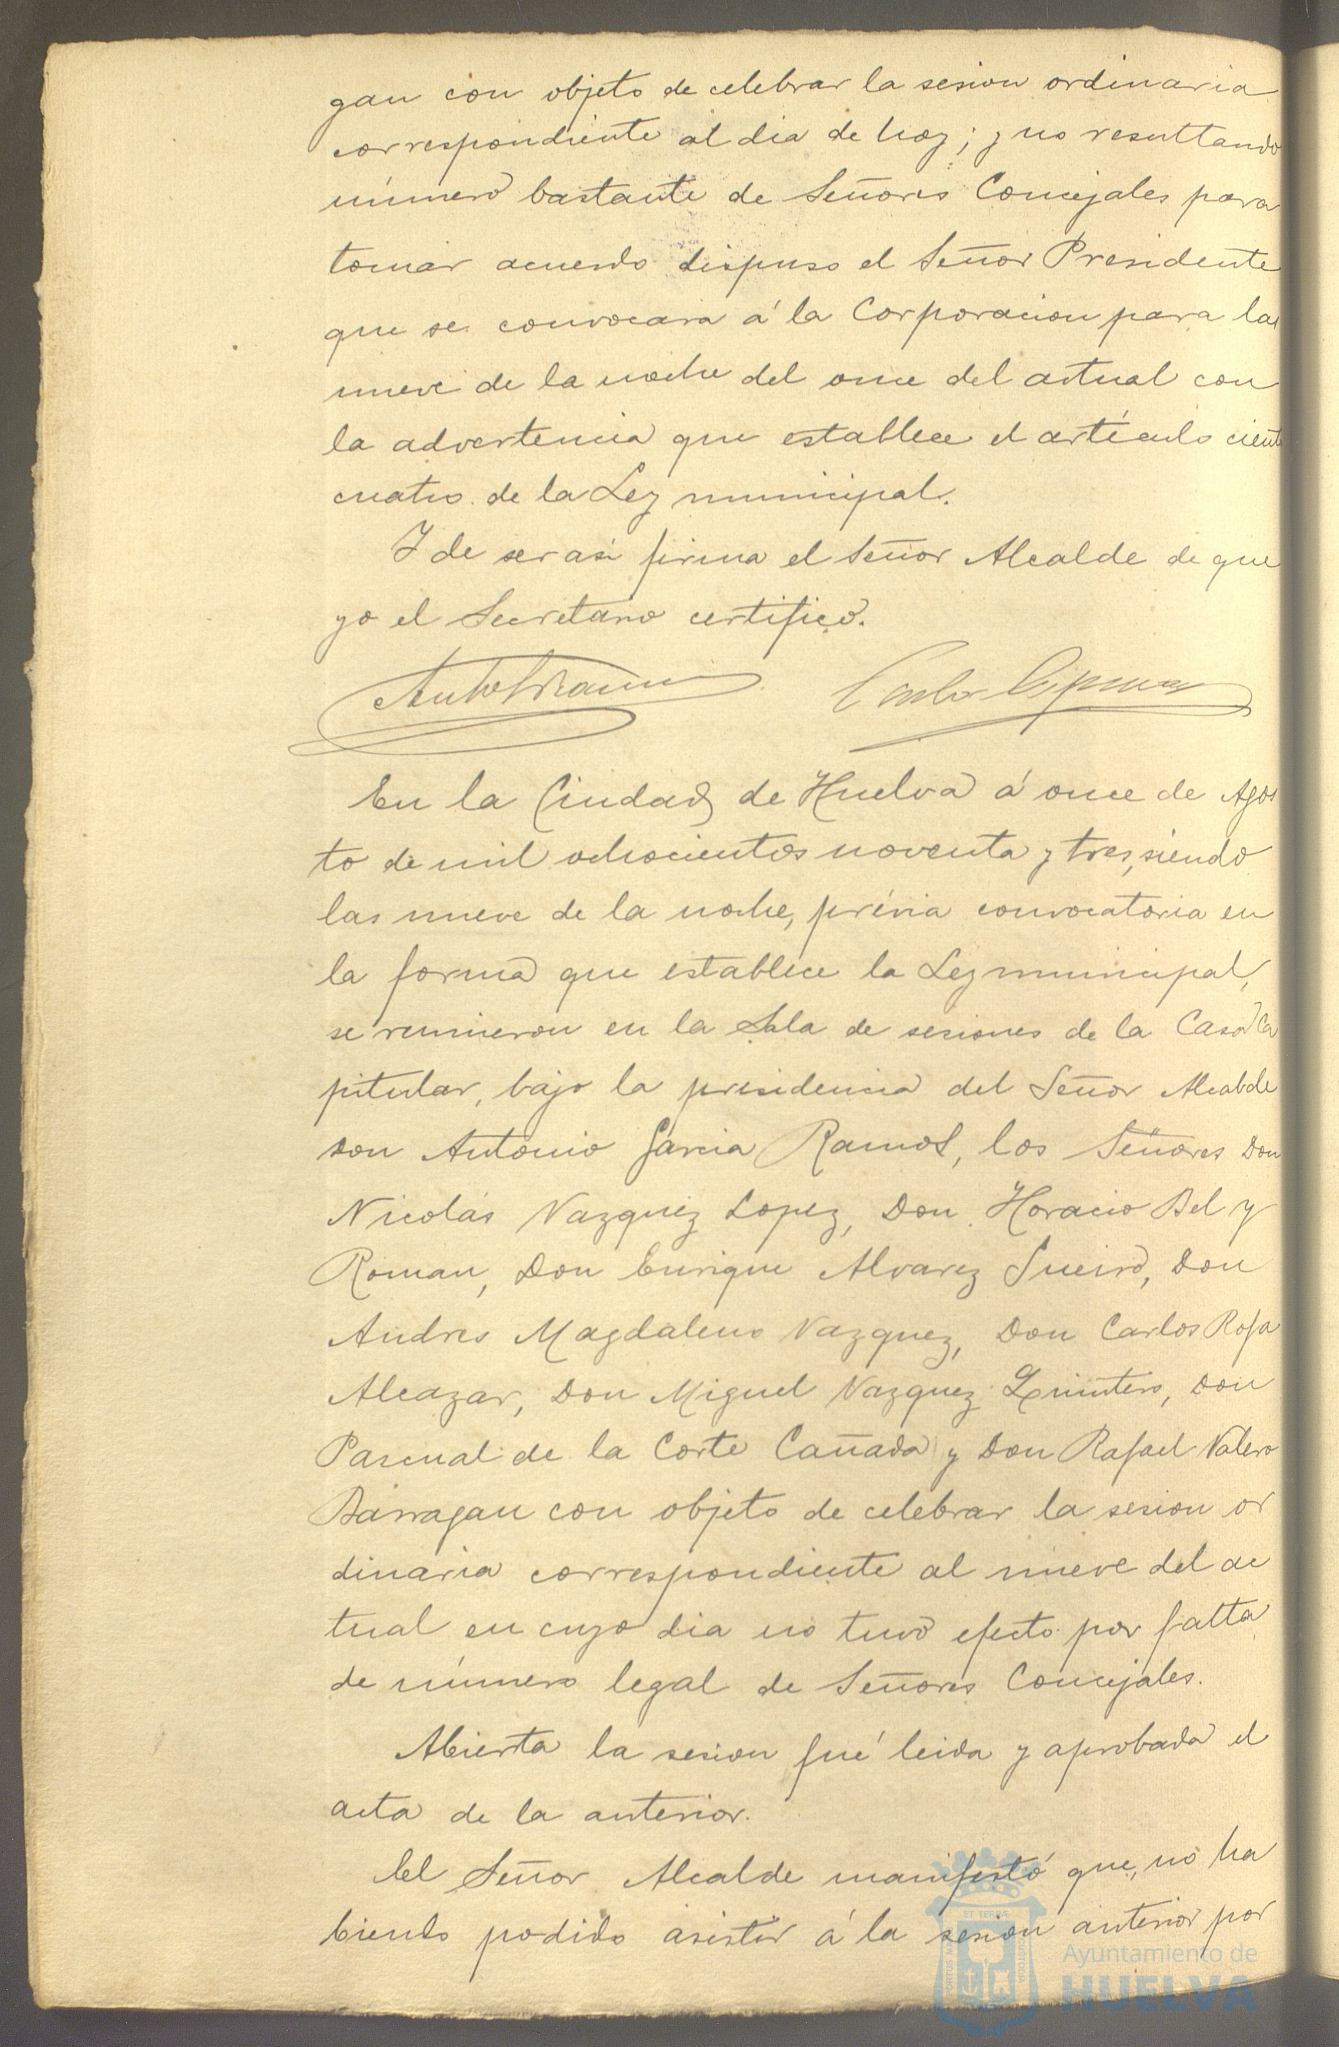 gan con objeto de celebrar la sesion ordinaria
correspondiente al dia de hoy; y no resultando
número bastante de Señores Concejales para
tomar acuerdo dispuso el Señor Presidente
que se convocara á la Corporacion para las
nueve de la noche del once del actual con
la advertencia que establece el artículo ciento
cuatro de la Ley municipal.
Y de ser asi firma el Señor Alcalde de que
yo el Secretario certifico.
En la Ciudad de Huelva á once de Agos
to de mil ochocientos noventa y tres, siendo
las nueve de la noche, prévia convocatoria en
la forma que establece la Ley municipal,
se reunieron en la Sala de sesiones de la Casa Ca
pitular, bajo la presidencia del Señor Alcalde
Don Antonio Garcia Ramos, los Señores Don
Nicolás Vazquez Lopez, Don Horacio Bel y
Roman, Don Enrique Alvarez Sueiro, Don
Andres Magdaleno Vazquez, Don Carlos Rofa
Alcazar, Don Miguel Vazquez Quintero, Don
Pascual de la Corte Cañada y Don Rafael Valero
Barragan con objeto de celebrar la sesion or
dinaria correspondiente al nueve del ac
tual en cuyo dia no tuvo efecto por falta
de número legal de Señores Concejales.
Abierta la sesion fué leida y aprobada el
acta de la anterior.
El Señor Alcalde manifestó que, no ha
biendo podido asistir á la sesion anterior por
Ayuntamiento de
HUELVA